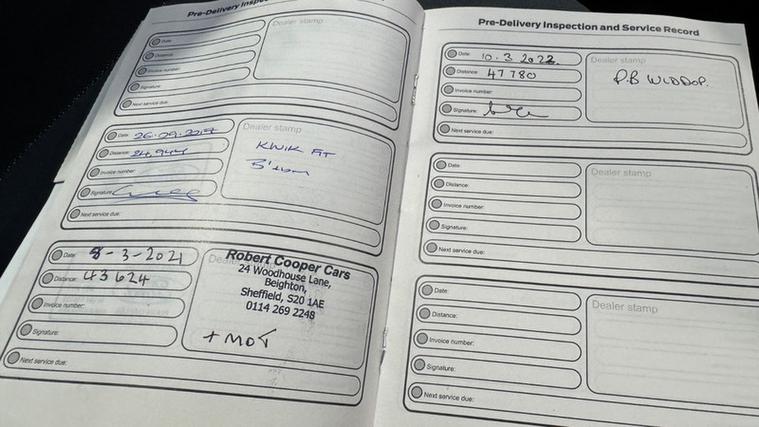 Pre-Delivery Inspec
Date:
Distance:
Invoice number:
Signature:
Next service due:
Dealer stamp
Date: 26.09.2019
Distance: 34,944
Invoice number:
Signature:
Next service due:
Dealer stamp
KWIK FIT
Date: 8-3-2021
Distance: 43624
Invoice number:
Signature:
Next service due:
Robert Cooper Cars
24 Woodhouse Lane,
Beighton,
Sheffield, S20 1AE
0114 269 2248
+ MOT
Pre-Delivery Inspection and Service Record
Date: 10.3 2022.
Distance: 47780
Invoice number:
Signature:
Next service due:
Dealer stamp
P.B WIDDOP.
Date:
Distance:
Invoice number:
Signature:
Next service due:
Dealer stamp
Date:
Distance:
Invoice number:
Signature:
Next service due:
Dealer stamp